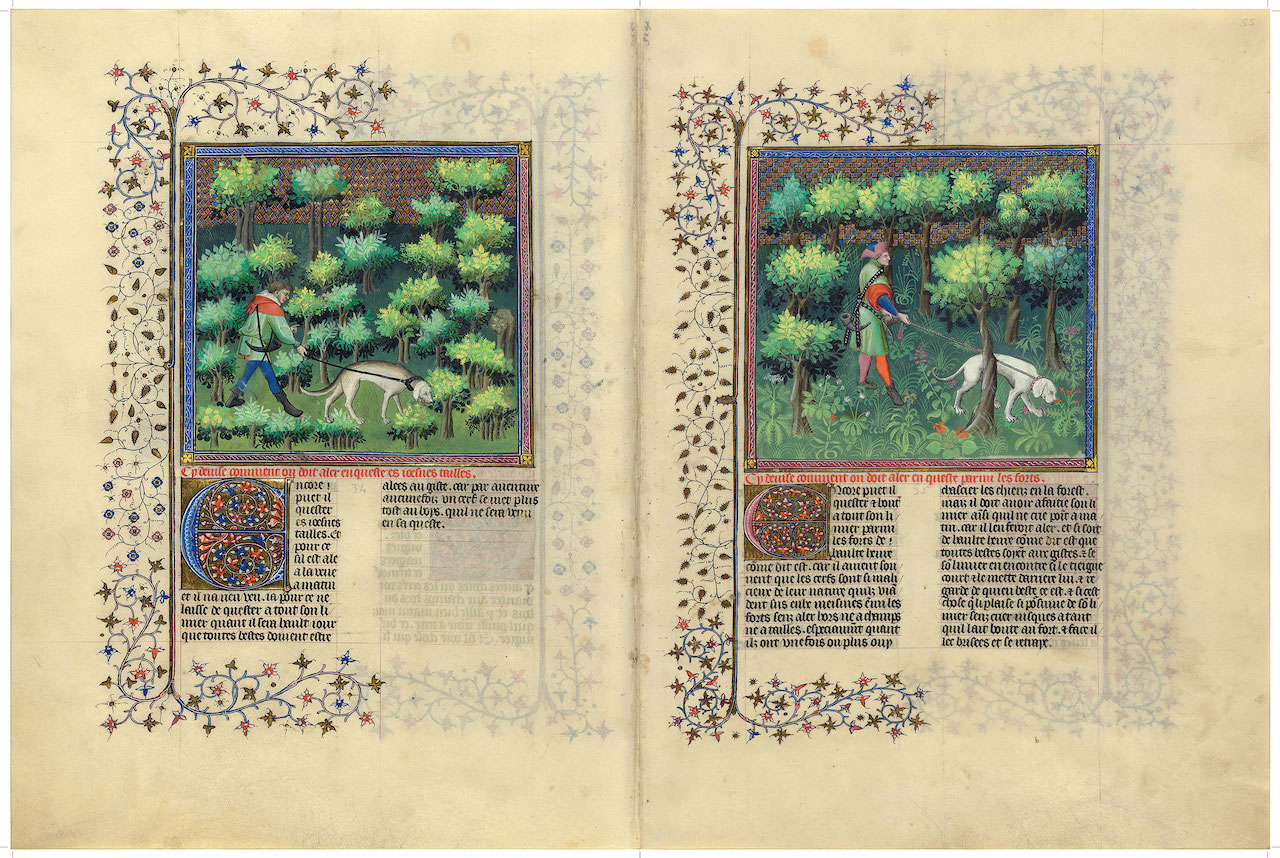 Cy deuise comment on doit aler en queste es ioesnes tailles.
Encore
puet il
quester
es ioesnes
tailles. Et
pour ce
sil est ale
a la veue
a matin
et il na rien veu. ia pour ce ne
laisse de quester a tout son li
mier quant il sera hault iour
que toutes bestes doiuent estre
alees au giste. car par auenture
aucunefoiz vn cerf se met plus
tost au boys. quil ne sera venu
en sa queste.
55
Cy deuise comment on doit aler en queste parmi les fors.
Encore puet il
quester &
a tout son li
mier parmi
les fors de
haulte heure
come dit est. car il auient sou
uent que les cerfs sont si mali
cieux de leur nature quilz
dent sus eulx meismes emi les
forts senz aler hors ne a champs
ne a tailles. especiaument quant
ilz ont vne fois ou plus ouy
chascier les chiens en la forest.
mais il doit auoir afaitie son li
mier aisi quil ne crie poit a ma
tin. car il len feroit aler. et si soit
de haulte heure come dit est que
toutes bestes soyet aux gistes. & se
so limier en encontre si le tiegne
court & le mette darriere lui. & re
garde de quien beste ce est. & si cest
chose qui plaise si
mier senz crier iusques a tant
quil lait boute au fort. & face il
lec brisees et se retraye.